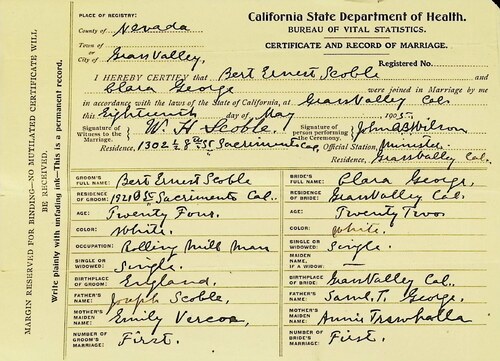 MARGIN RESERVED FOR BINDING—NO MUTILATED CERTIFICATE WILL BE RECEIVED.
Write plainly with unfading ink—This is a permanent record.
PLACE OF REGISTRY:
County of Nevada
Town of or City of Grass Valley,
California State Department of Health.
BUREAU OF VITAL STATISTICS.
CERTIFICATE AND RECORD OF MARRIAGE.
Registered No.
I HEREBY CERTIFY that Bert Ernest Scoble and
Clara George were joined in Marriage by me
in accordance with the laws of the State of California, at Grass Valley Cal.
this Eighteenth day of May 1905
Signature of Witness to the Marriage W. H. Scoble.
Signature of person performing the Ceremony. John A B Wilson
Residence, 1302 ½ 8th St Sacramento Cal, Official Station, Minister
Residence, Grass Valley Cal.
GROOM'S FULL NAME: Bert Ernest Scoble
BRIDE'S FULL NAME: Clara George,
RESIDENCE OF GROOM: 1521 B St Sacramento Cal.
RESIDENCE OF BRIDE: Grass Valley Cal.
AGE: Twenty Four.
AGE: Twenty Two.
COLOR: White.
COLOR: White.
OCCUPATION: Rolling Mill Man
SINGLE OR WIDOWED: Single.
SINGLE OR WIDOWED: Single.
MAIDEN NAME, IF A WIDOW:
BIRTHPLACE OF GROOM: England.
BIRTHPLACE OF BRIDE: Grass Valley Cal.
FATHER'S NAME: Joseph Scoble,
FATHER'S NAME: Saml. T. George,
MOTHER'S MAIDEN NAME: Emily Vercoe,
MOTHER'S MAIDEN NAME: Annie Trewhella
NUMBER OF GROOM'S MARRIAGE: First.
NUMBER OF BRIDE'S MARRIAGE: First.